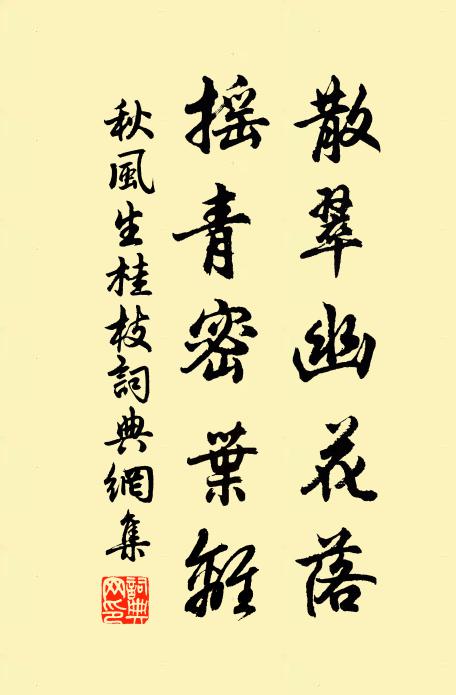 散翠幽花落
摇青密葉離
秋風生桂枝詞典網集
詞典網印